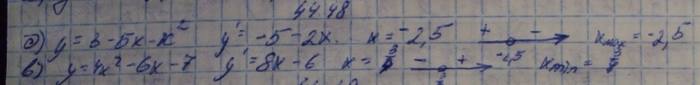 44.48
а) y = 3 - 5x - x² y' = -5 - 2x. x = -2,5 + - -2,5 xmax = -2,5
б) y = 4x² - 6x - 7 y' = 8x - 6 x = - + xmin =